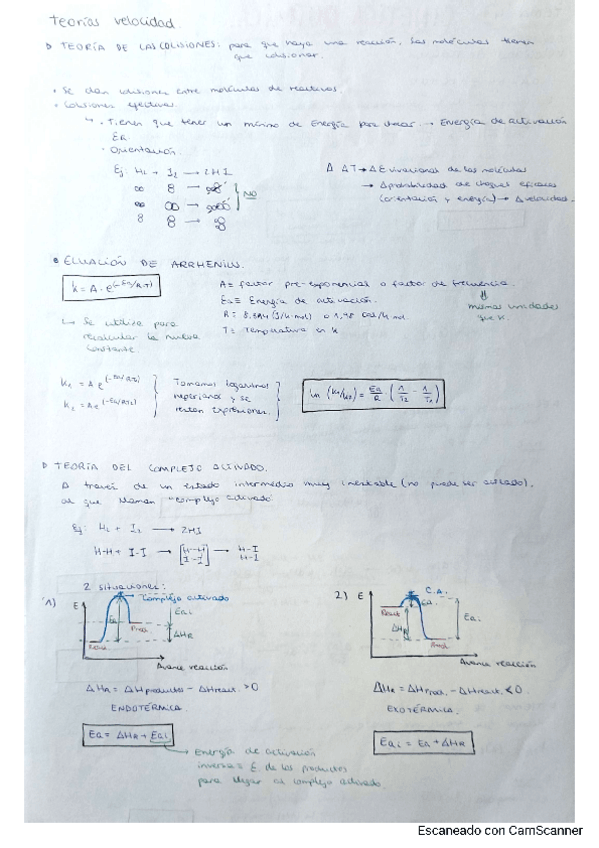 Teorías velocidad.
▷ TEORÍA DE LAS COLISIONES: para que haya una reacción, las moléculas tienen
que colisionar.
• Se dan colisiones entre moléculas de reactivos.
• Colisiones efectivas.
↳ • Tienen que tener un mínimo de Energía para chocar → Energía de activación
Ea
• Orientación.
Ej: H₂ + I₂ → 2HI
NO
Δ ΔT → Δ E vibracional de las moléculas
→ Δ probabilidad de choques eficaces
(orientación y energía) → Δ velocidad.
ECUACIÓN DE ARRHENIUS.
k = A · e^(-Ea/R·T)
A = factor pre-exponencial o factor de frecuencia.
Ea = Energía de activación.
mismas unidades
que K.
R = 8.314 (J/K·mol) o 1,98 cal/K mol
T = Temperatura en K
↳ Se utiliza para
recalcular la nueva
constante.
k₁ = A e^(-Ea/RT₁)
k₂ = A e^(-Ea/RT₂)
Tomamos logaritmos
neperianos y se
restan expresiones.
ln (k₁/k₂) = Ea/R (1/T₂ - 1/T₁)
▷ TEORÍA DEL COMPLEJO ACTIVADO.
A través de un estado intermedio muy inestable (no puede ser aislado),
al que llaman "complejo activado"
Ej: H₂ + I₂ → 2HI
H-H + I-I → [H--H I--I] → H-I H-I
2 situaciones:
1) E
Complejo activado
Ea
Ea i
Prod.
ΔHR
React
Avance reacción
ΔHR = ΔHproductos - ΔHreact. > 0
ENDOTÉRMICA.
Ea = ΔHR + Ea i
→ Energía de activación
inversa = E de los productos
para llegar al complejo activado.
2) E
C.A.
Ea
React
Ea i
ΔHR
Prod.
Avance reacción
ΔHR = ΔHprod. - ΔHreact. < 0.
EXOTÉRMICA.
Ea i = Ea + ΔHR
Escaneado con CamScanner